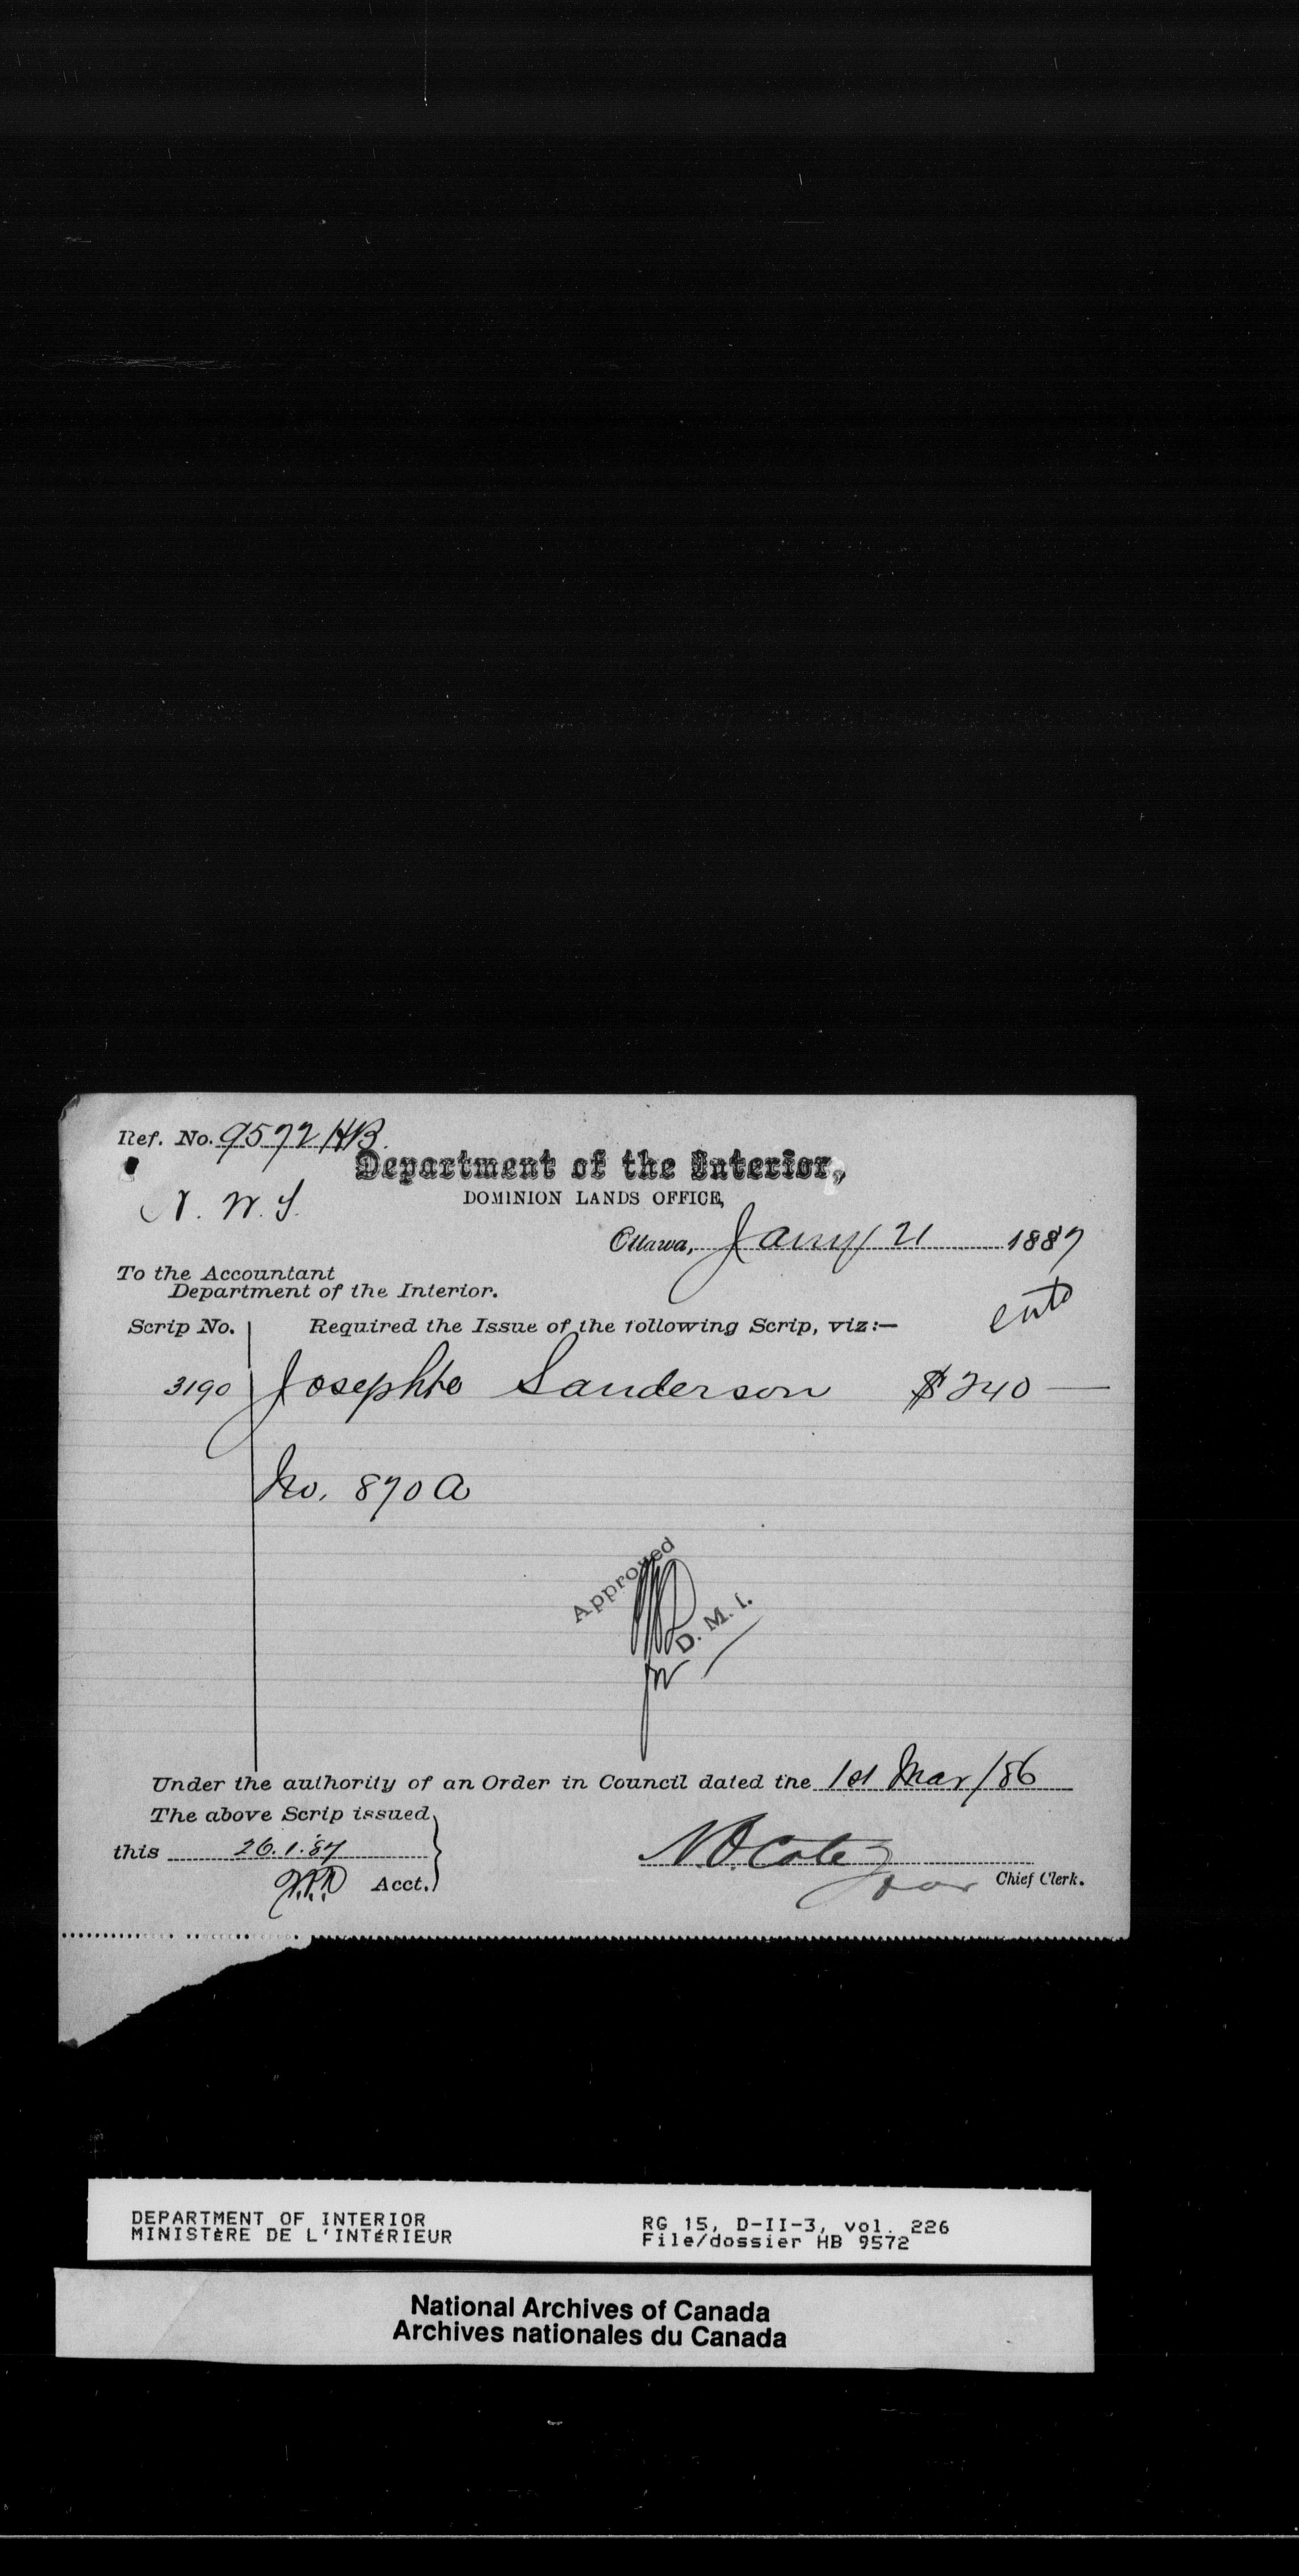 Ref. No. 9572 HB
Department of the Interior,
N. W. T.
DOMINION LANDS OFFICE,
Ottawa, Jany 21 1887
To the Accountant
Department of the Interior.
Scrip No. Required the Issue of the following Scrip, viz:—
3190 Josephte Sanderson $240 —
No. 870 A
Approved
D. M. I.
Under the authority of an Order in Council dated the 1st Mar/86
The above Scrip issued
this 26.1.87
N.O. Cote
Acct.
Chief Clerk.
DEPARTMENT OF INTERIOR
MINISTÈRE DE L'INTÉRIEUR
RG 15, D-II-3, vol. 226
File/dossier HB 9572
National Archives of Canada
Archives nationales du Canada